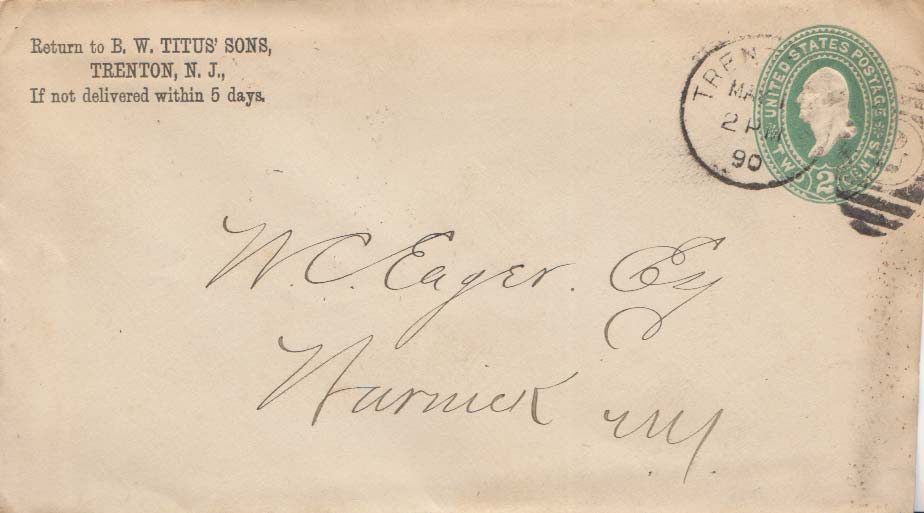 Return to B. W. TITUS' SONS,
TRENTON, N. J.,
If not delivered within 5 days.
TREN
MA
2 PM
90
UNITED STATES POSTAGE
TWO 2 CENTS
W. C. Eager. Esq
Warwick N.Y.